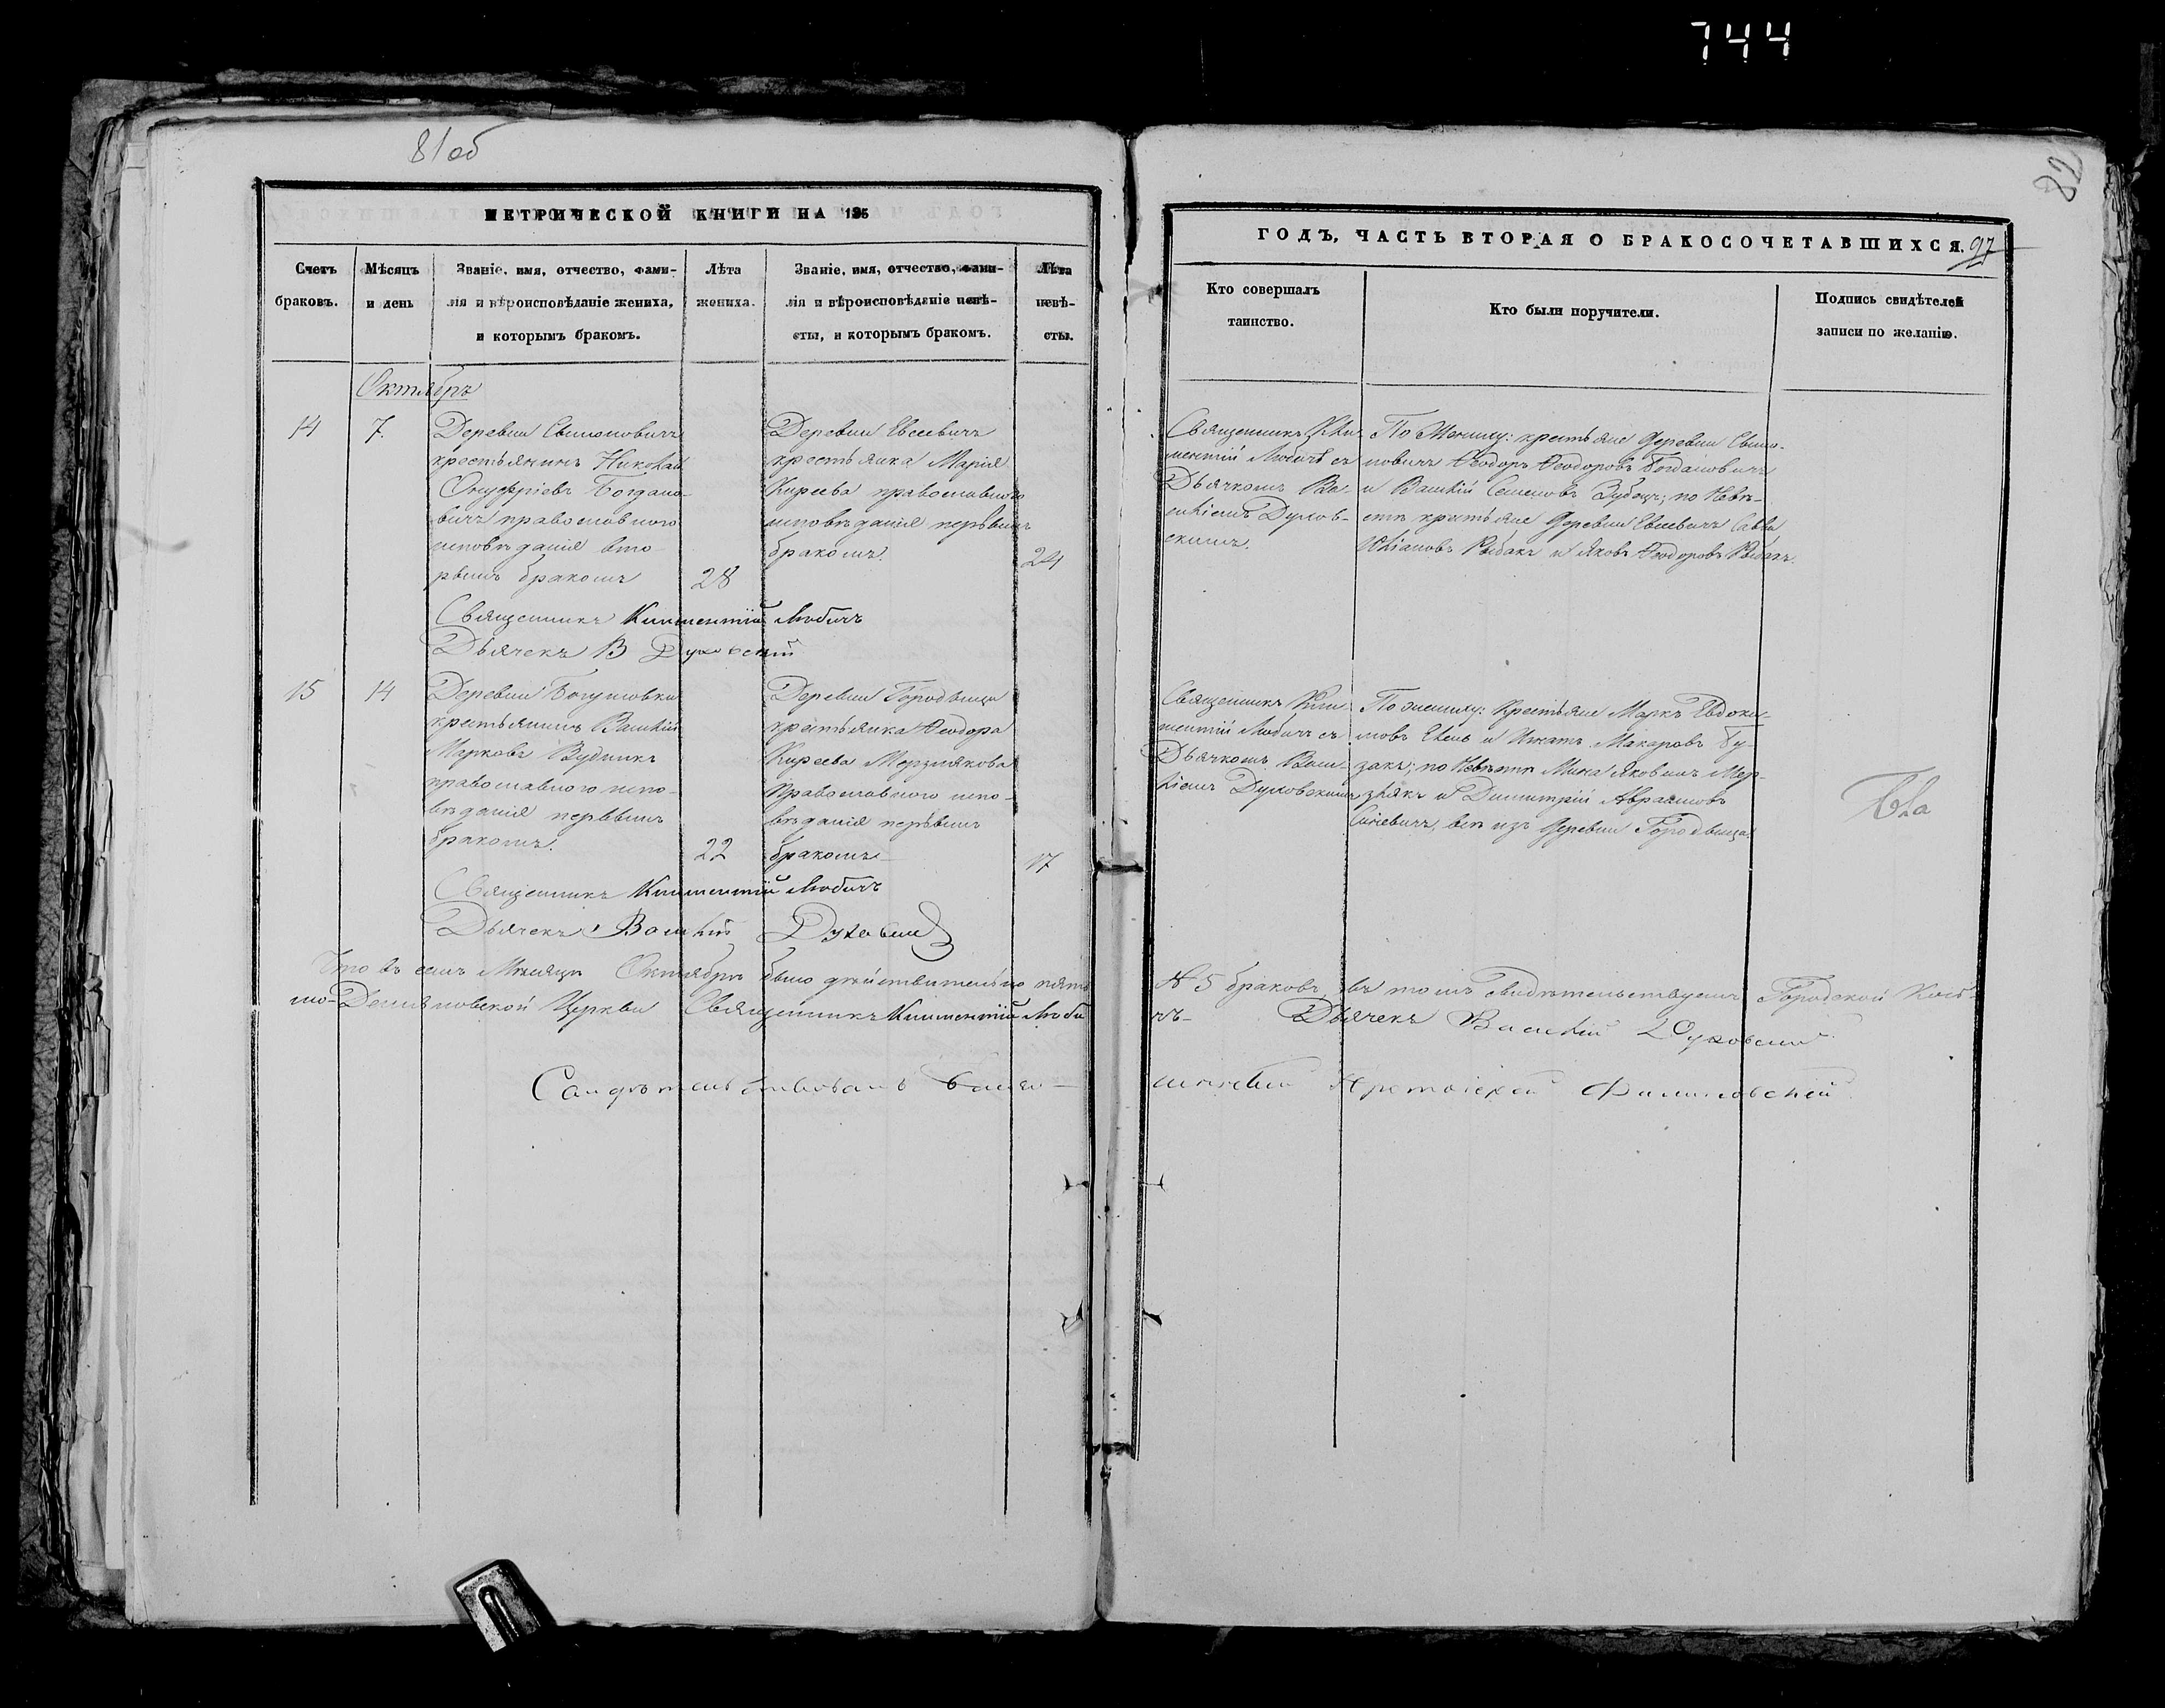 744
81об
МЕТРИЧЕСКОЙ КНИГИ НА 185
Счетъ браковъ.
Мѣсяцъ и день
Званіе, имя, отчество, фами-
лія и вѣроисповѣданіе жениха,
и которымъ бракомъ.
Лѣта
жениха.
Званіе, имя, отчество, фами-
лія и вѣроисповѣданіе невѣ-
сты, и которымъ бракомъ.
Лѣта
невѣ-
сты.
Октябрь
14
7.
Деревни Евтиовичъ
крестьянинъ Николай
Онуфріевъ Богдано-
вичъ православного
исповѣданія вто-
рымъ бракомъ
28
Деревни Евсеевичъ
крестьянка Марія
Киреева православного
исповѣданія первымъ
бракомъ.
24
Священникъ Климентій Любичъ
Дьячекъ В Духовскій
15
14
Деревни
крестьянинъ Василій
Марковъ Будникъ
православного испо-
вѣданія первымъ
бракомъ.
22
Деревни Городьища
крестьянка Ѳеодора
Киреева Мерзлякова
Православного испо-
вѣданія первымъ
бракомъ
17
Священникъ Климентій Любичъ
Дьячекъ Василій Духовскій
Что въ семъ Месяцѣ Октябрѣ было действительно пять
но-Демьяновской Церкви Священникъ Климентій Люби
Свидѣтельствовалъ
82
ГОДЪ, ЧАСТЬ ВТОРАЯ О БРАКОСОЧЕТАВШИХСЯ.
97
Кто совершалъ
таинство.
Кто были поручители.
Подпись свидѣтелей
записи по желанію.
Священникъ Кли-
ментій Любичъ съ
Дьячкомъ Ва-
силіемъ Духов-
скимъ.
По Жениху: крестьяне деревни
новичъ Ѳеодоръ Ѳеодоровъ Богдановичъ
и Василій Семеновъ Зубецъ; по Невѣ-
стѣ крестьяне деревни Евсеевичъ Савва
Уліановъ Рыбакъ и Яковъ Ѳеодоровъ Рыбакъ.
Священникъ Кли-
ментій Любичъ съ
Дьячкомъ Васи-
ліемъ Духовскимъ
По жениху: Крестьяне Маркъ Евдоки-
мовъ и Игнатъ Макаровъ Бу-
закъ; по Невѣстѣ Мина Яковинъ Мер-
злякъ и Димитрій Авраамовъ
всѣ изъ деревни Городьища
№ 5 браковъ въ томъ свидѣтельствуемъ Городской Косъ-
чъ- Дьячекъ Василій Духовскій
Протоіерей Филиповскій